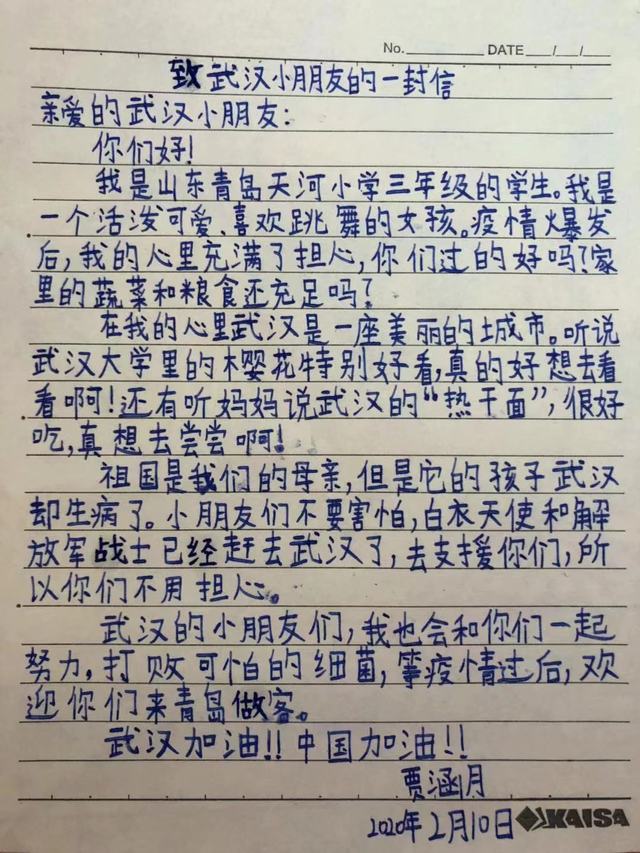 No. DATE / /
致武汉小朋友的一封信
亲爱的武汉小朋友:
你们好!
我是山东青岛天河小学三年级的学生。我是
一个活泼可爱、喜欢跳舞的女孩。疫情爆发
后,我的心里充满了担心,你们过的好吗?家
里的蔬菜和粮食还充足吗?
在我的心里武汉是一座美丽的城市。听说
武汉大学里的樱花特别好看,真的好想去看
看啊!还有听妈妈说武汉的“热干面”,很好
吃,真想去尝尝啊!
祖国是我们的母亲,但是它的孩子武汉
却生病了。小朋友们不要害怕,白衣天使和解
放军战士已经赶去武汉了,去支援你们,所
以你们不用担心。
武汉的小朋友们,我也会和你们一起
努力,打败可怕的细菌,等疫情过后,欢
迎你们来青岛做客。
武汉加油!!中国加油!!
贾涵月
2020年2月10日 KAISA